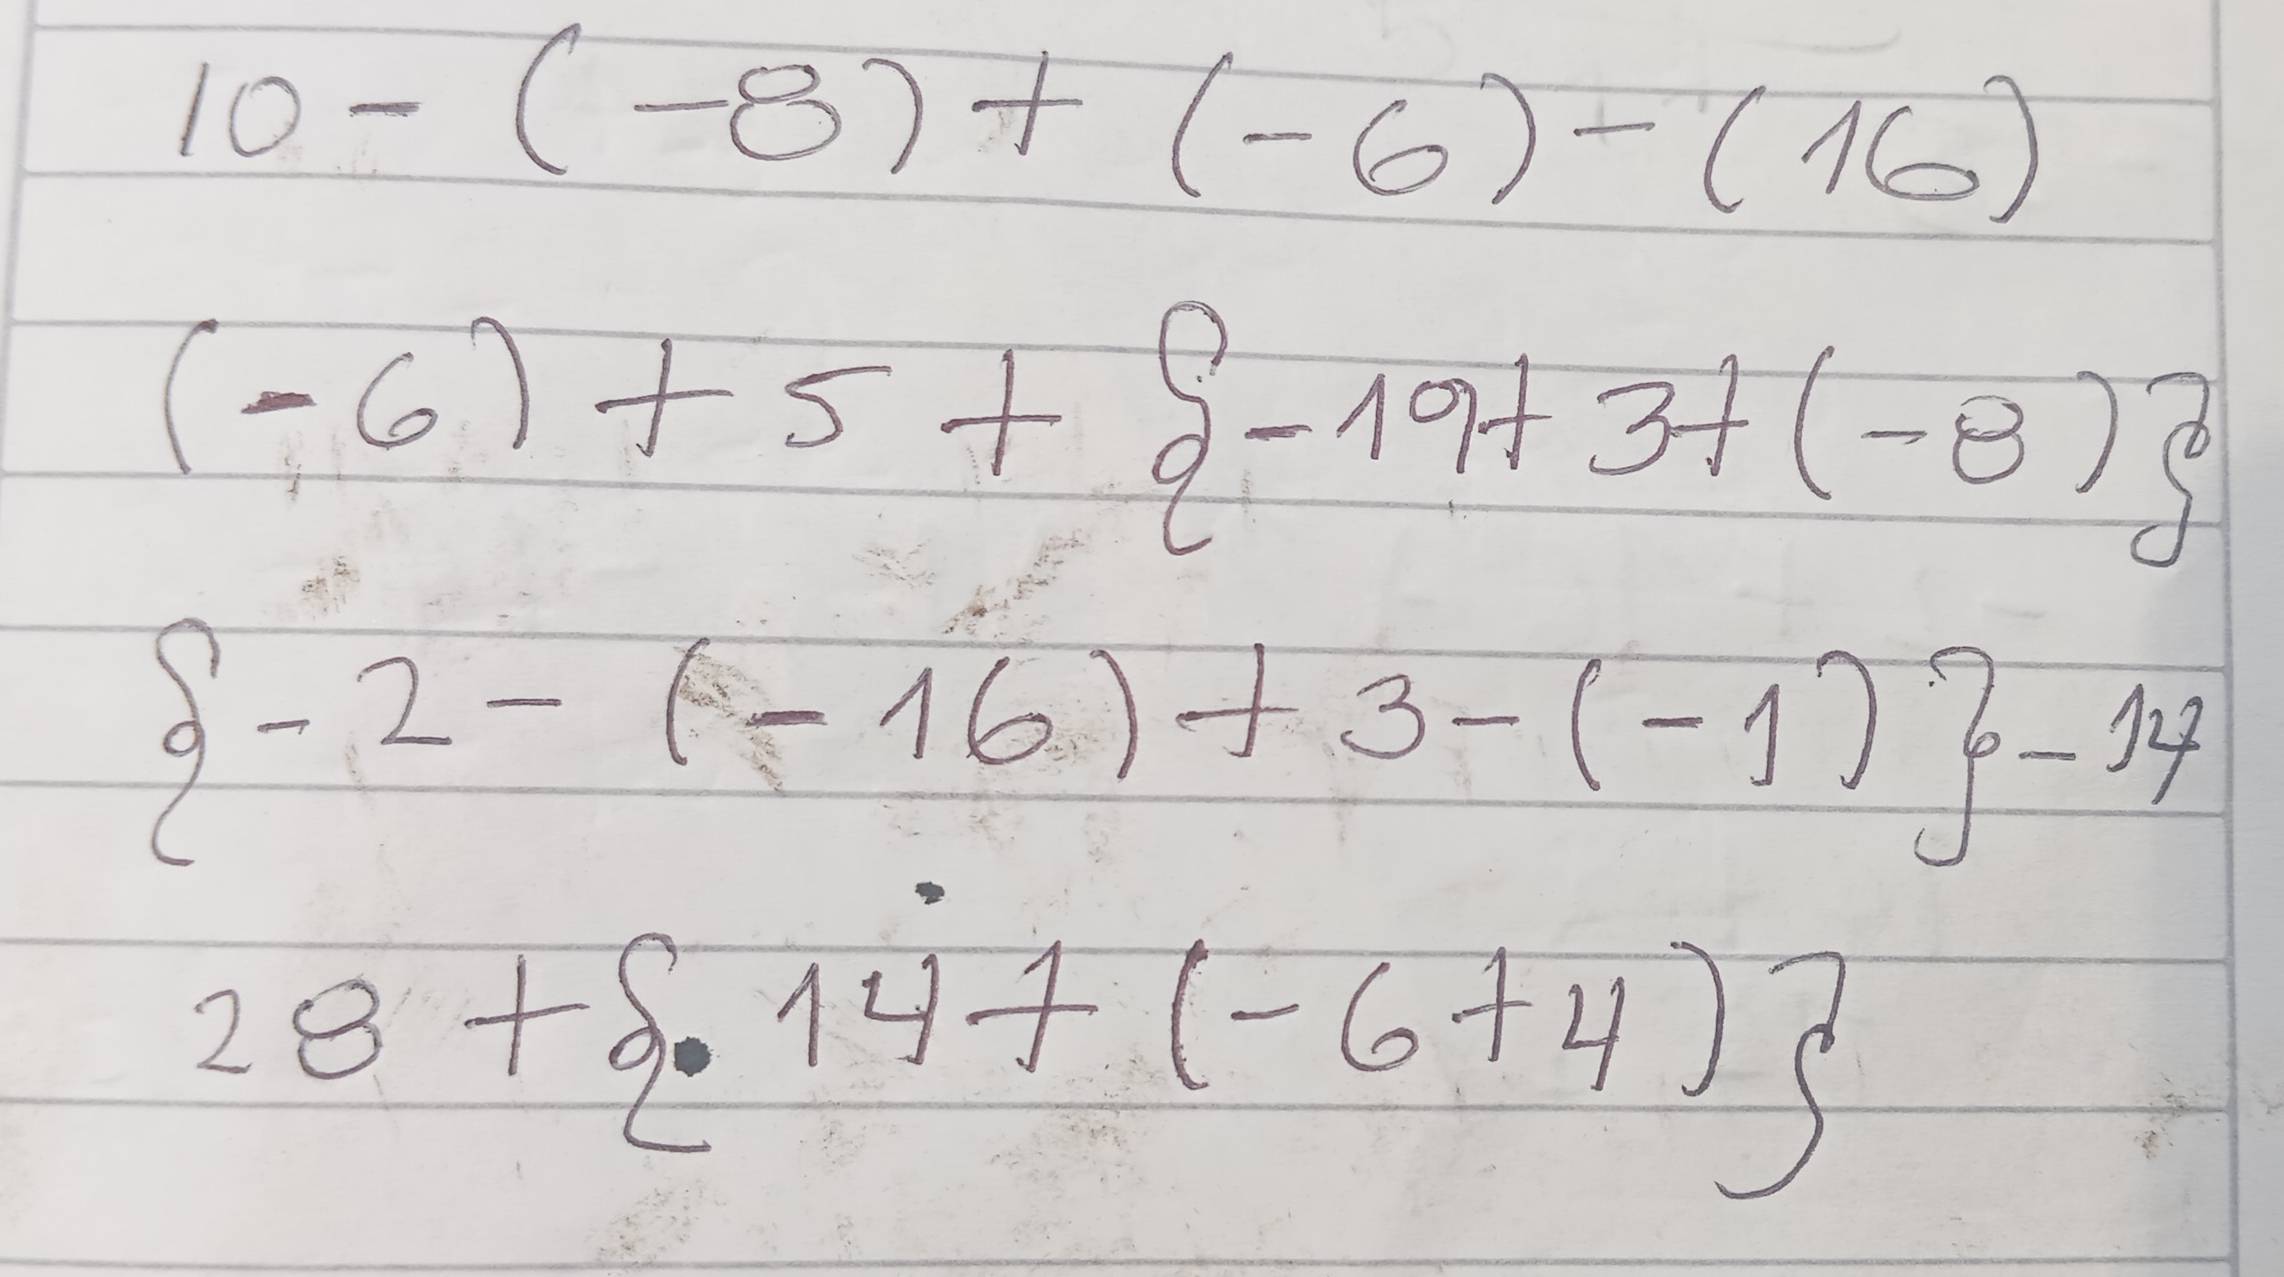 10 - (-8) + (-6) - (16)
(-6) + 5 + {-19 + 3 + (-8)}
{-2 - (-16) + 3 - (-1)} - 14
28 + {14 + (-6 + 4)}